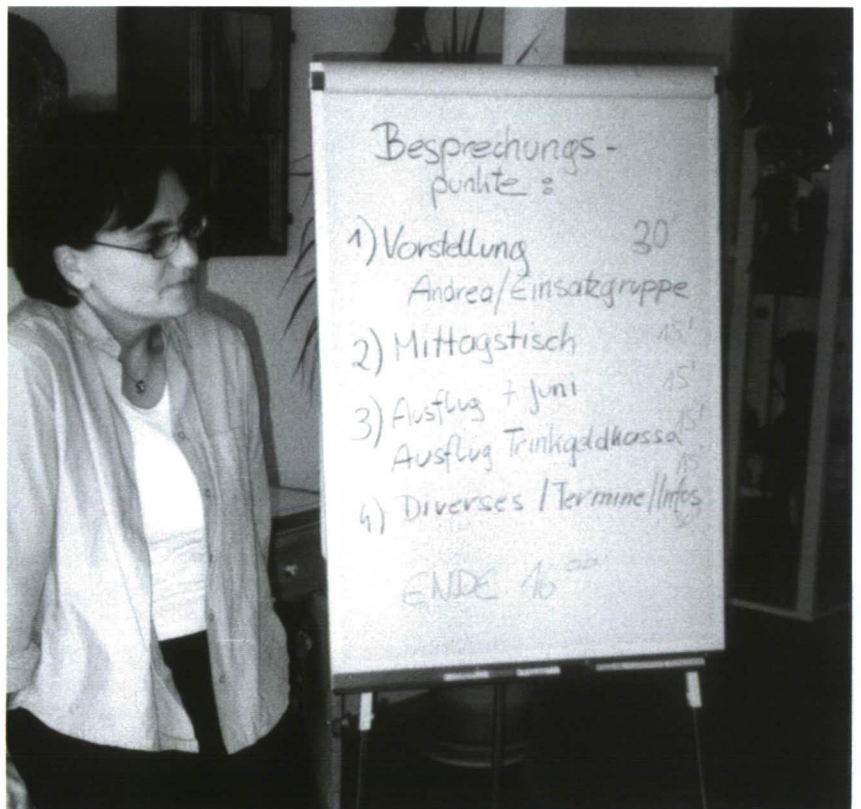 Besprechungs-
punkte :
1) Vorstellung 30'
Andrea/Einsatzgruppe
2) Mittagstisch 15'
3) Ausflug 7 Juni 15'
Ausflug Trinkgeldkassa 15'
15'
4) Diverses / Termine / Infos
ENDE 16 00